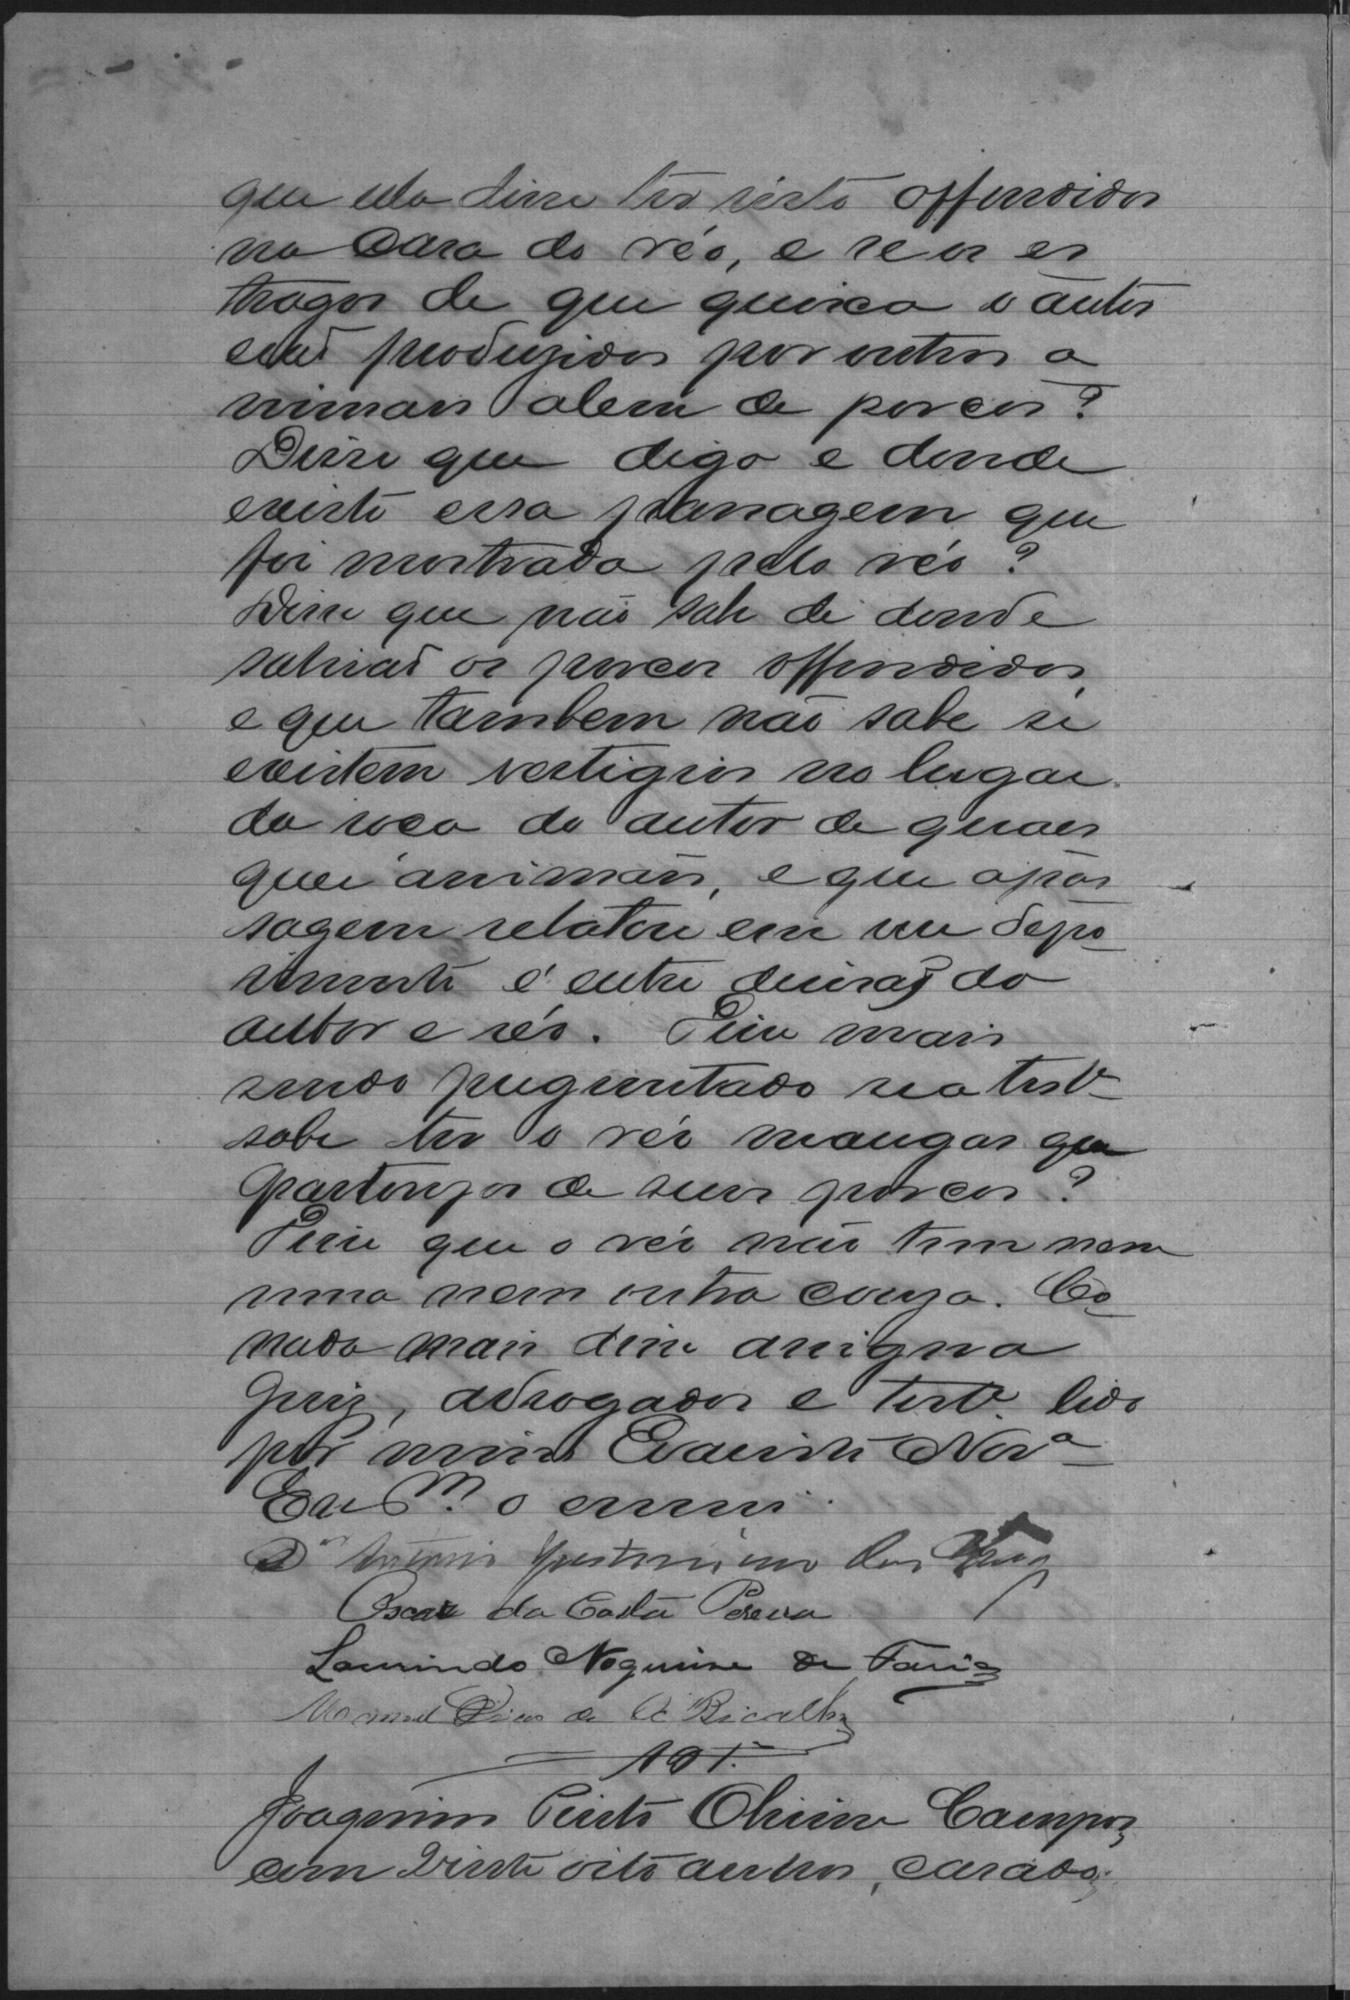 que ella disse ter visto offendidos
na casa do réo, e se os es
tragos de que queixa o autor
são produzidos por outros a
nimaes alem de porcos?
Disse que digo e donde
existe essa passagem que
foi mostrada pelo réo?
Disse que não sabe de donde
sahirão os porcos offendidos,
e que tambem não sabe si
existem vestigios no lugar
da roça do autor de quaes
quer animaes, e que a pas
sagem relatou em seu depo
imento é entre divisas do
autor e réo. Disse mais
sendo preguntado se a testª
sabe ter o réo mangas que
pastos de seus porcos?
Disse que o réo não tem nem
uma nem outra couza. E
nada mais disse assigna
Juiz, advogados e testª lido
por mim Evaristo
Escm. o escrevi.
Dr Antonio
Oscar da Costa Pereira
Laurindo Nogueira de Faria
Manoel Dias de Sá Bicalho
Joaquim Pinto Campos,
com vinte oito annos, casado,